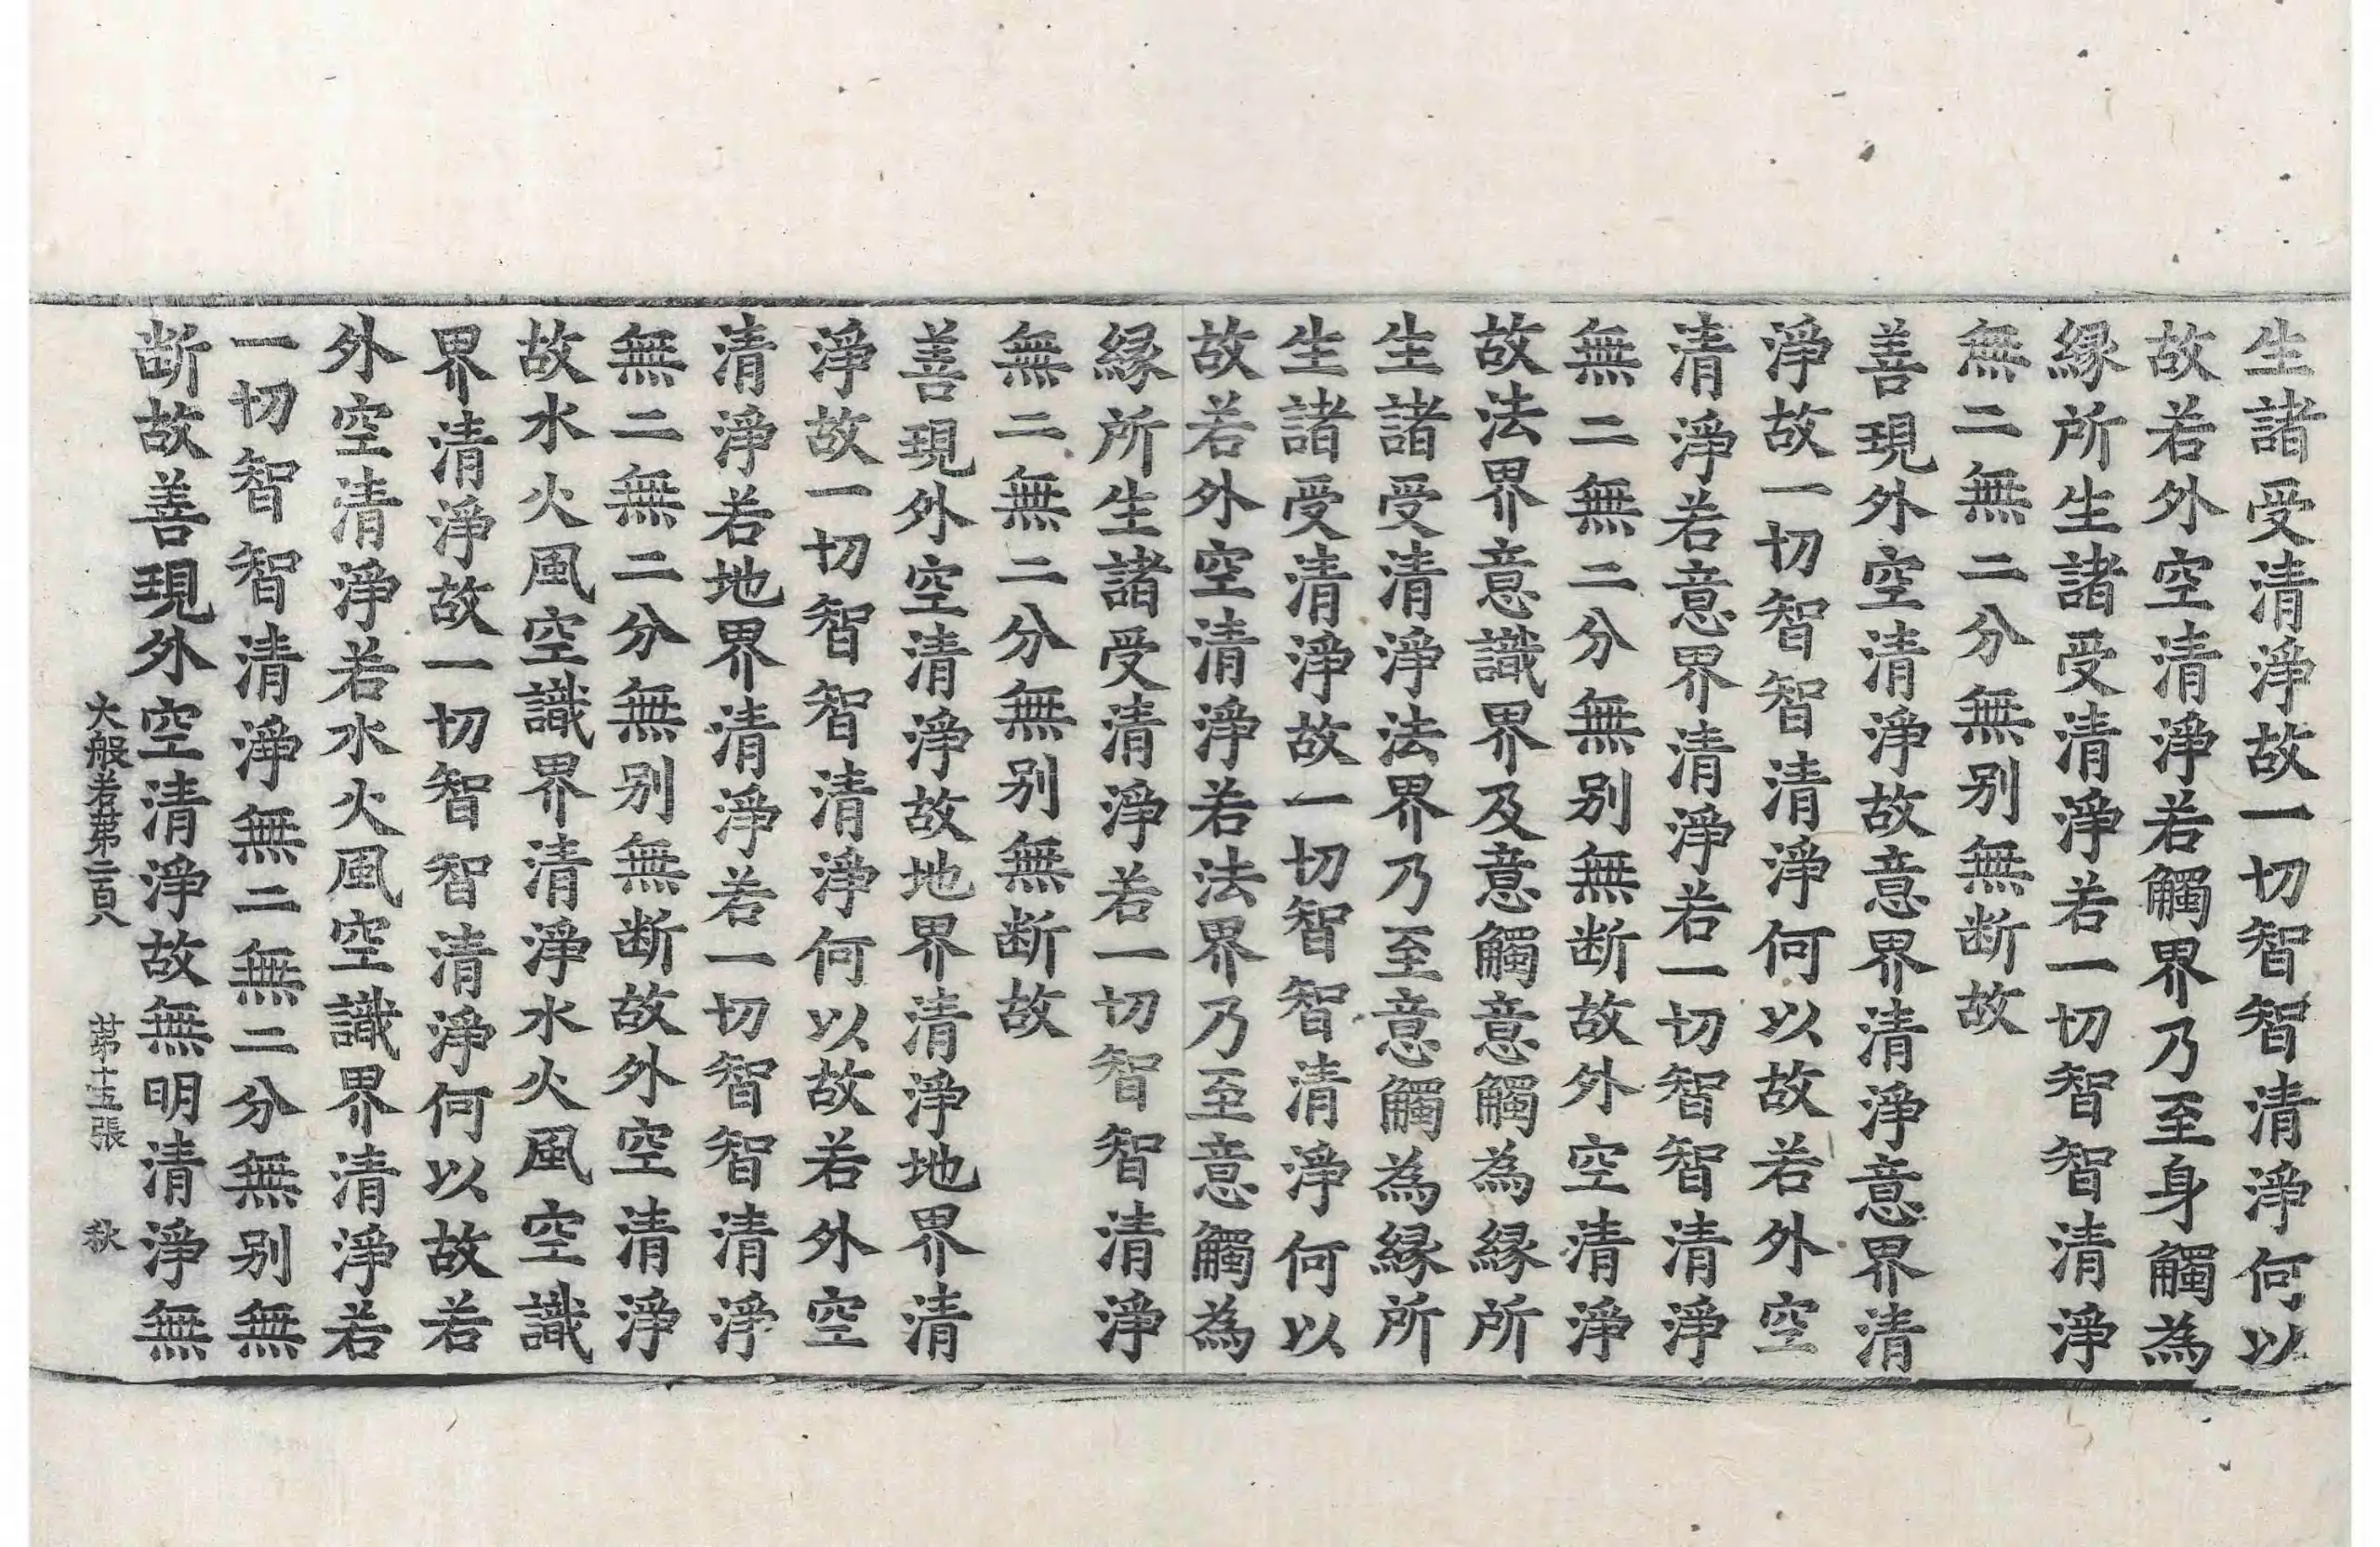 生諸受清淨故一切智智清淨何以
故若外空清淨若觸界乃至身觸為
縁所生諸受清淨若一切智智清淨
無二無二分無别無断故
善現外空清淨故意界清淨意界清
淨故一切智智清淨何以故若外空
清淨若意界清淨若一切智智清淨
無二無二分無别無断故外空清淨
故法界意識界及意觸意觸為縁所
生諸受清淨法界乃至意觸為縁所
生諸受清淨故一切智智清淨何以
故若外空清淨若法界乃至意觸為
縁所生諸受清淨若一切智智清淨
無二無二分無别無断故
善現外空清淨故地界清淨地界清
淨故一切智智清淨何以故若外空
清淨若地界清淨若一切智智清淨
無二無二分無别無断故外空清淨
故水火風空識界清淨水火風空識
界清淨故一切智智清淨何以故若
外空清淨若水火風空識界清淨若
一切智智清淨無二無二分無别無
断故善現外空清淨故無明清淨無
大般若苐二百八 苐十五張 秋